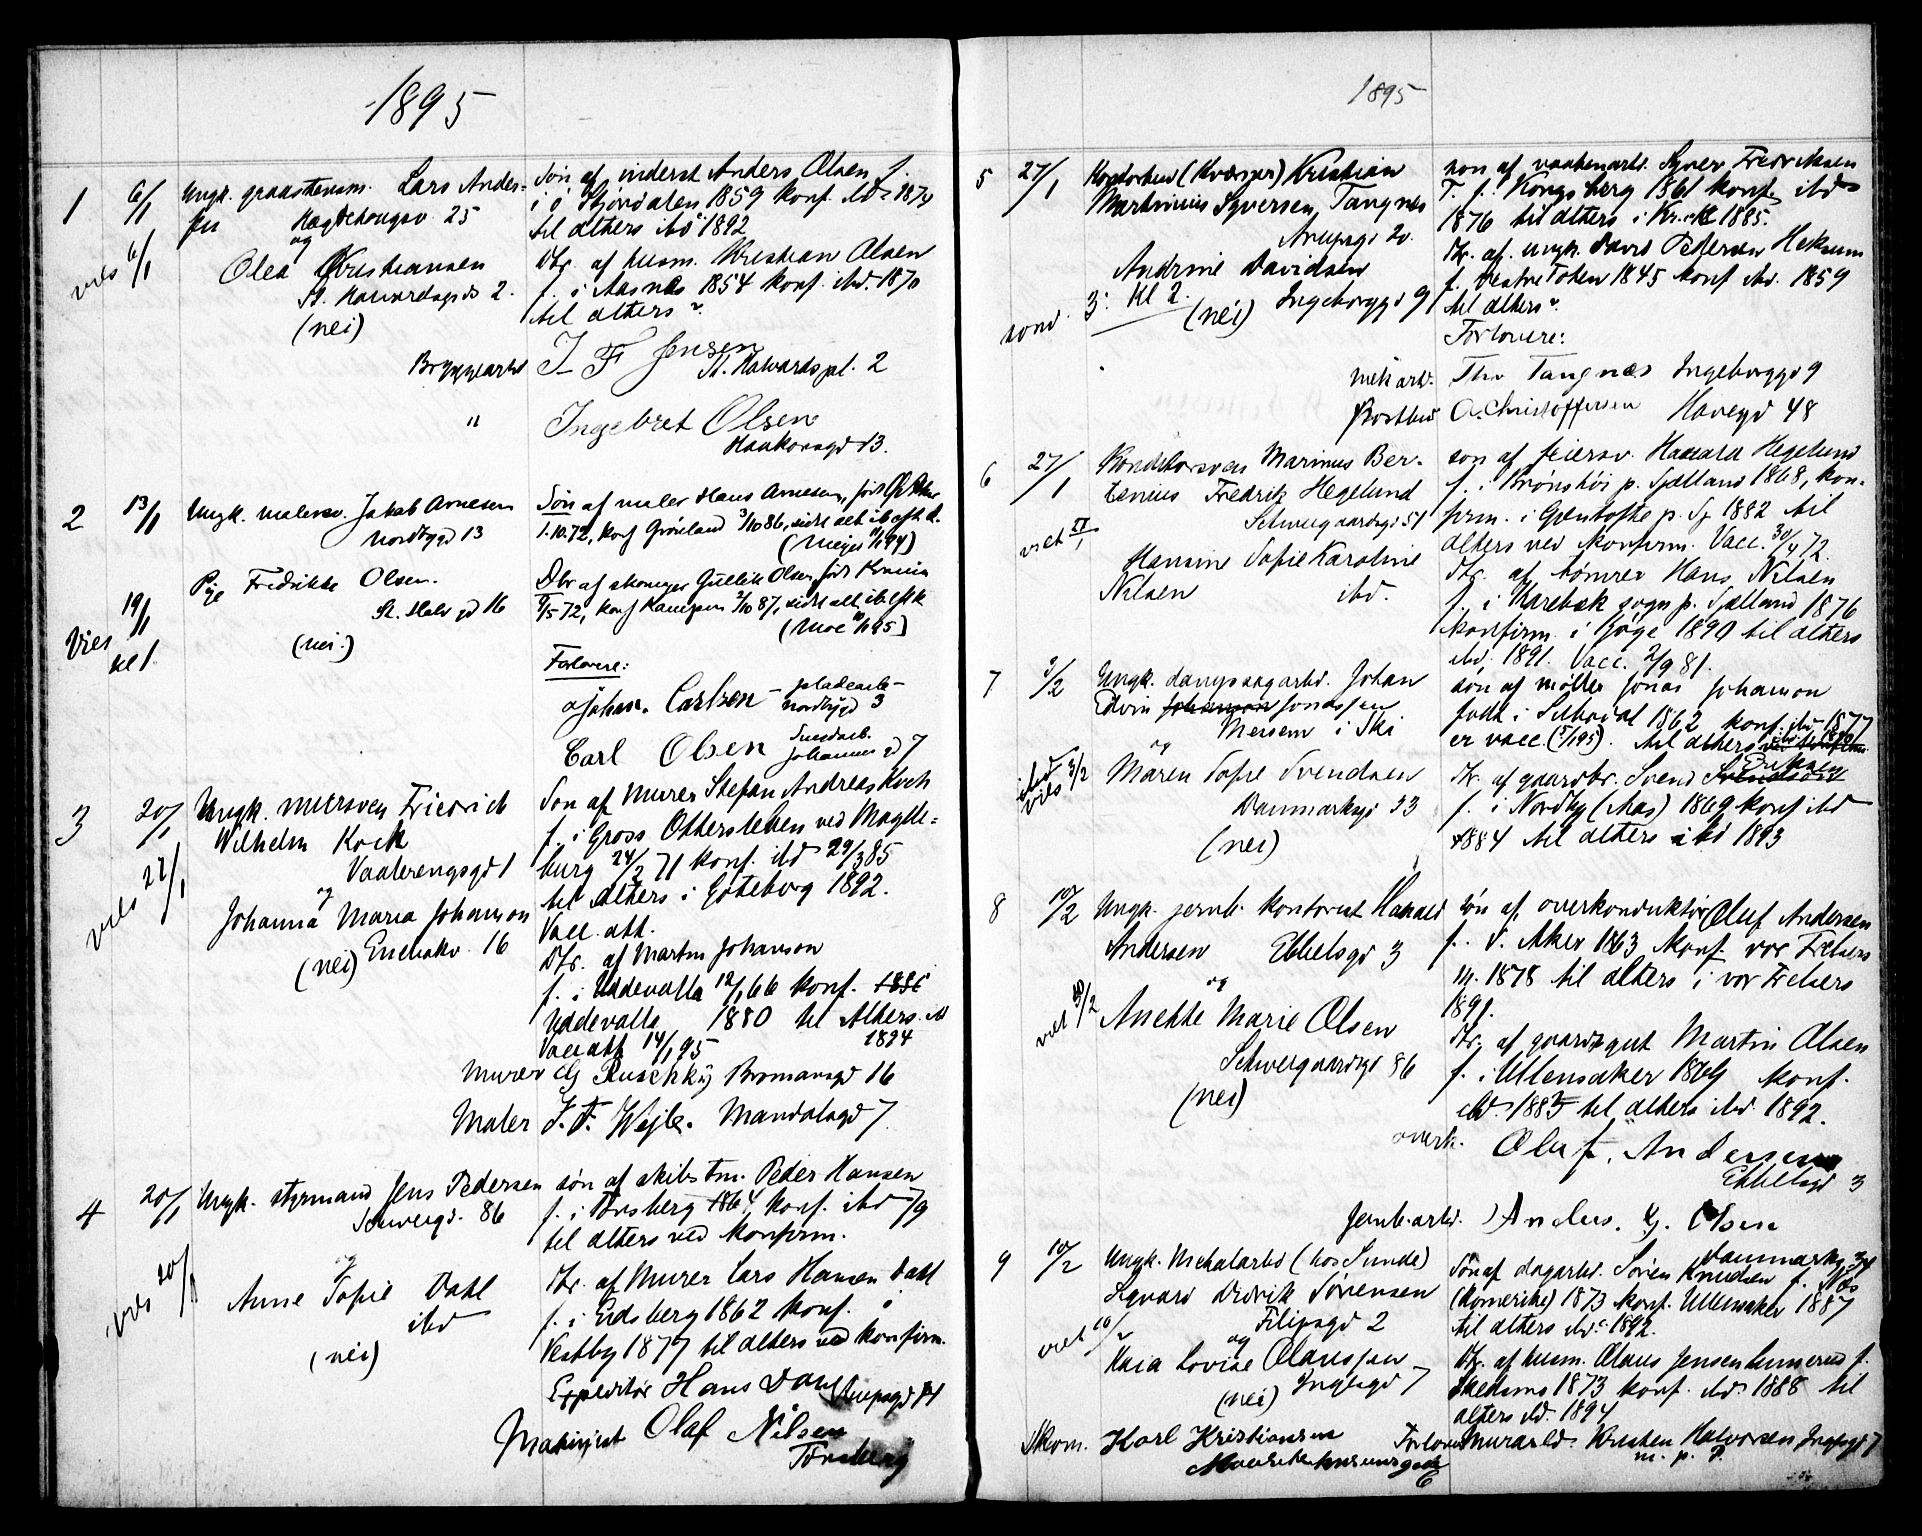 1895
1 6/1 Ungk. graastensm. Lars Anders-
sen Hægdehougsv. 25
og
viet 6/1 Olea Kristiansen
St. Halvardsgd 2.
(nei)
Søn af inderst Anders Olsen f.
i ø Stjørdalen 1859 konf. ibd 1874
til alters ibd 1892
Dtr. af husm. Kristian Olsen
f. i Aasnes 1854 konf. ibd. 1870
til alters
Bryggearbd J F Jensen
St. Halvards pl. 2
" Ingebret Olsen
Haakonsgd 13.
2 13/1 Ungk. malersv. Jakob Arnesen
Nordbygd 13
Pige Fredrikke Olsen.
St. Halv gd 16
19/1
Vies
kl 1
(nei.)
Søn af maler Hans Arnesen, født
1-10-72, konf Grønland 3/10 86, sidst alt. ib.
Dtr af skomager Gullik Olsen, født Krania
/5-72, konf Kampen 2/10 87, sidst alt. ib.
(Moe 95)
Forlovere:
Johan. Carlsen - pladearb -
Nordbygd 3
Carl Olsen
Johannesgd 7
3 20/1 Ungk. mursven Friedrich
Wilhelm Kock
Vaalerengsgd 1
viet 22/1 og
Johanna Maria Johanson
Enebokv. 16
(nei)
Søn af Murer Stefan Andreas Koch
f. i Gross Ottersleben ved Magde-
burg 24/2 71 konf. ibd 29/3 85
til alters i Göteborg 1892.
Vacc. att.
Dtr. af Martin Johanson
f. i Uddevalla 12/1 66 konf. 1886
Uddevalla 1880 til Alters ibd
1894
Vacc att 14/1 95
Murer G Ruschky Bromansgd 16
Maler J. F. Wejle. Mandalsgd 7
4 20/1 Ungk. styrmand Jens Pedersen
Schweigd. 86
og
viet 20/1 Anne Sofie Dahl
ibd
(nei)
søn af skibstm. Peder Hansen
f. i Tønsberg 1864, konf. ibd 79
til alters ved konfirm.
Dtr. af Murer Lars Hansen Dahl
f. i Eidsberg 1862 konf. i
Vestby 1877 til alters ved konfirm.
Expeditør Hans Dahl
Maskinist Olaf Nilsen
Tønsberg
1895
5 27/1 Kristian
Martinius Syversen Tangnes
Arupsgd 20.
Andrine Davidsen
sønd. 3. kl 2. (nei) Ingeborggd 9
søn af vaabenarb. Syver Fredriksen
T. f. Kongsberg 1861 konf. ibd
1876 til alters i Kr.
1885.
Dtr. af ungk. David Pedersen Heksum
f. Vestre Toten 1845 konf ibd. 1859
til alters
Forlovere:
mek arb. Thv Tangnæs Ingeborggd 9
Postbud A. Christoffersen Havegd 48
6 27/1 Konditorsven Marinus Ber-
tenius Fredrik Hegelund
Schweigaardsgd 51
viet 27/1 Hansine Sofie Karoline
Nilsen ibd.
søn af feiersv. Harald Hegelund
f. i Brønshöi p. Sjælland 1868, kon-
firm. i Gjentofte p. Sj 1882 til
alters ved konfirm. Vacc. 30/4 72.
Dtr. af tømrer Hans Nilsen
f. i Karebæk sogn p. Sjælland 1876
konfirm. i Kjøge 1890 til alters
ibd. 1891. Vacc. 2/9 81.
7 3/2 Ungk. dampsagarbd. Johan
Edvin Johanson Jonassen
Mensem i Ski
og
viet 3/2 Maren Sofie Svendsen
Danmarksgd 33
(nei)
søn af møller Jonas Johanson
født i 1862 konf. ibd 1877
er vacc. ( 95). til alters
Dtr. af gaardbr. Svend Svendsen Eriksen
f. i Nordby (Aas) 1869 konf ibd
1884 til alters ibd 1893
8 10/2 Ungk. jernb. kontorist Harald
Andersen Ebbelsgd 3
og
viet /2 Anette Marie Olsen
Schweigaardsgd 86
(nei)
søn af overkonduktør Oluf Andersen
f. V. Aker 1863 konf vor Frelsers
m. 1878 til alters i vor Frelsers
1891.
Dtr. af gaardsgut Martin Olsen
f. i Ullensaker 1869 konf.
ibd. 1885 til alters ibd. 1892.
overk. Oluf. Andersen
Ebbelsgd 3
Jernb. arbd. Anders. G. Olsen
Danmarksg. 34
9 10/2 Ungk. Metalarbd (hos Sunde)
Sigvard Didrik Sørensen
Filipsgd 2
og
viet 10/ Kaia Lovise Olaussen
(nei) Inglsgd 7
Søn af dagarbd. Søren Knudsen f. Næs
(Romerike) 1873 konf. Ullensaker 1887
til alters ibd. 1892.
Dtr. af husm. Olaus Jensen f.
Skedsmo 1873 konf. ibd. 1888 til
alters ibd. 1894
Skom. Karl Kristiansen
Forlovere Murarbd. Kristen Halvorsen Inglsgd 7
m. p. P.